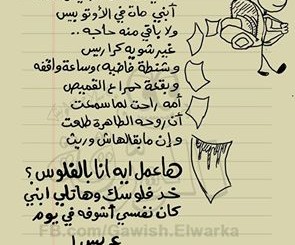 ابني مات في الأوتوبيس
ولا باقي منه حاجه ..
غير شوية كراريس
وشنطة فاضيه وساعة واقفه
وبقعة حمرا ع القميص
أمه راحت لما سمعت
أن روحه الطاهرة طلعت
وإن ما بقالهاش وريث
هاعمل ايه انا بالفلوس؟
خد فلوسك وهاتلي ابني
كان نفسي أشوفه في يوم
عريس!
FB.com/Gawish.Elwarka